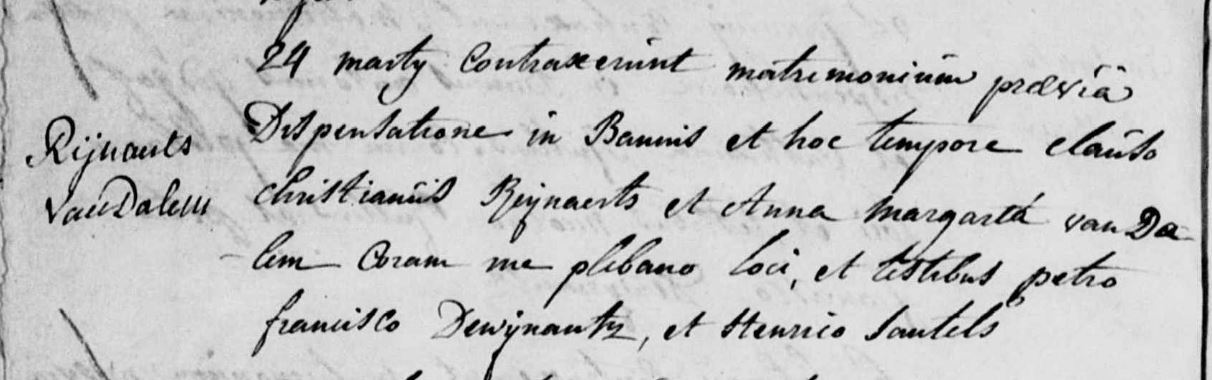 24 marty contraxerunt matrimonium prævia
Rijnants
Dispensatione in Bannis et hoc tempore clauso
VanDalem
christianus Reijnaerts et Anna margarta van Da-
lem Coram me plebano loci, et testibus petro
francisco Dewijnantz, et Henrico Santels